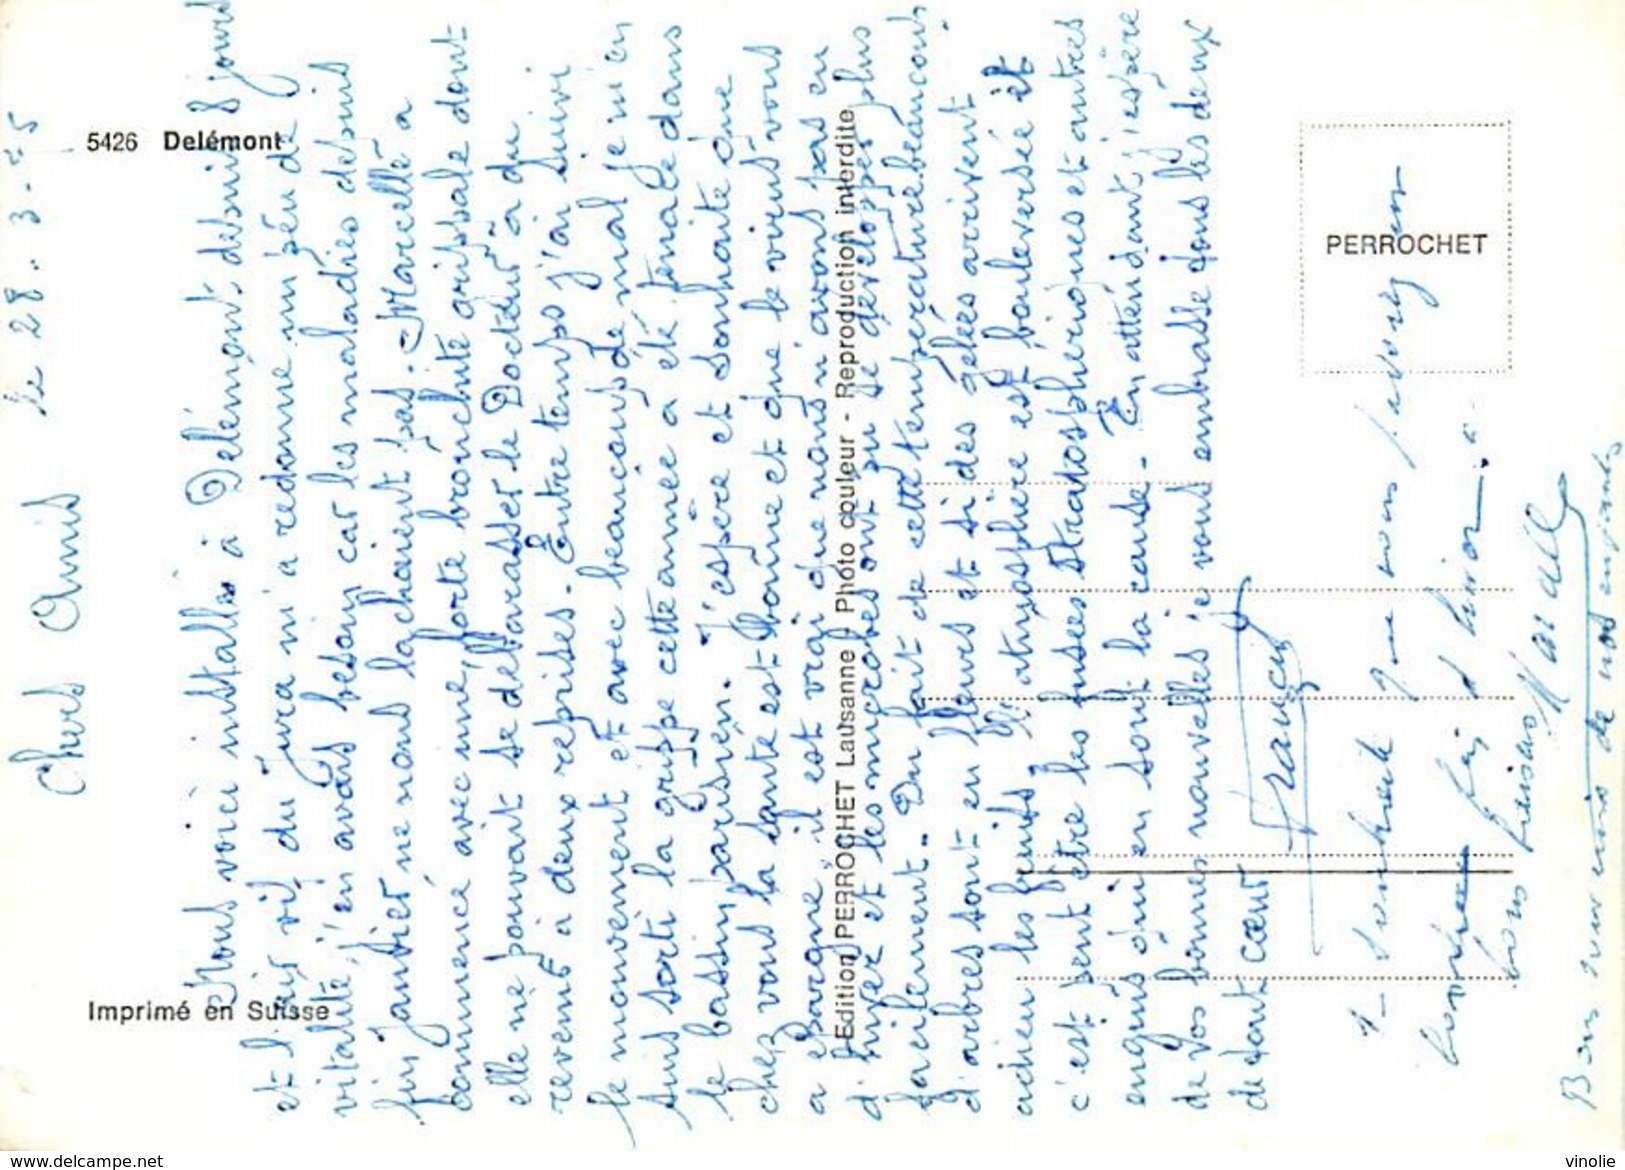 le 28.3-75
Chers Amis
Nous voici installés à Delémont depuis 8 jours
et l'air vif du Jura m'a redonné un peu de
vitalité j'en avais besoin car les maladies depuis
fin Janvier ne nous lachaient pas. Marcelle a
commencé avec une forte bronchite grippale dont
elle ne pouvait se débarasser le Docteur a du
revenir à deux reprises. Entre temps j'ai suivi
le mouvement et avec beaucoup de mal je m'en
suis sorti la grippe cette année a été tenace dans
le bassin parisien. J'espère et souhaite que
chez vous la santé est bonne et que le virus vous
a épargné, il est vrai que nous n'avons pas eu
d'hiver et les microbes ont pu se développer plus
facilement. Du fait de cette température beaucoup
d'arbres sont en fleurs et si des gelées arrivent
adieu les fruits, l'atmosphère est bouleversée et
c'est peut être les fusées stratosphériques et autres
engins qui en sont la cause. En attendant j'espère
de vos bonnes nouvelles je vous embrasse tous les deux
de tout cœur
Francis
Je souhaite que vous
bons baisers Marcelle
Bons souvenirs de nos enfants
5426 Delémont
Imprimé en Suisse
Edition PERROCHET Lausanne - Photo couleur - Reproduction interdite
PERROCHET
www.delcampe.net
vinolie